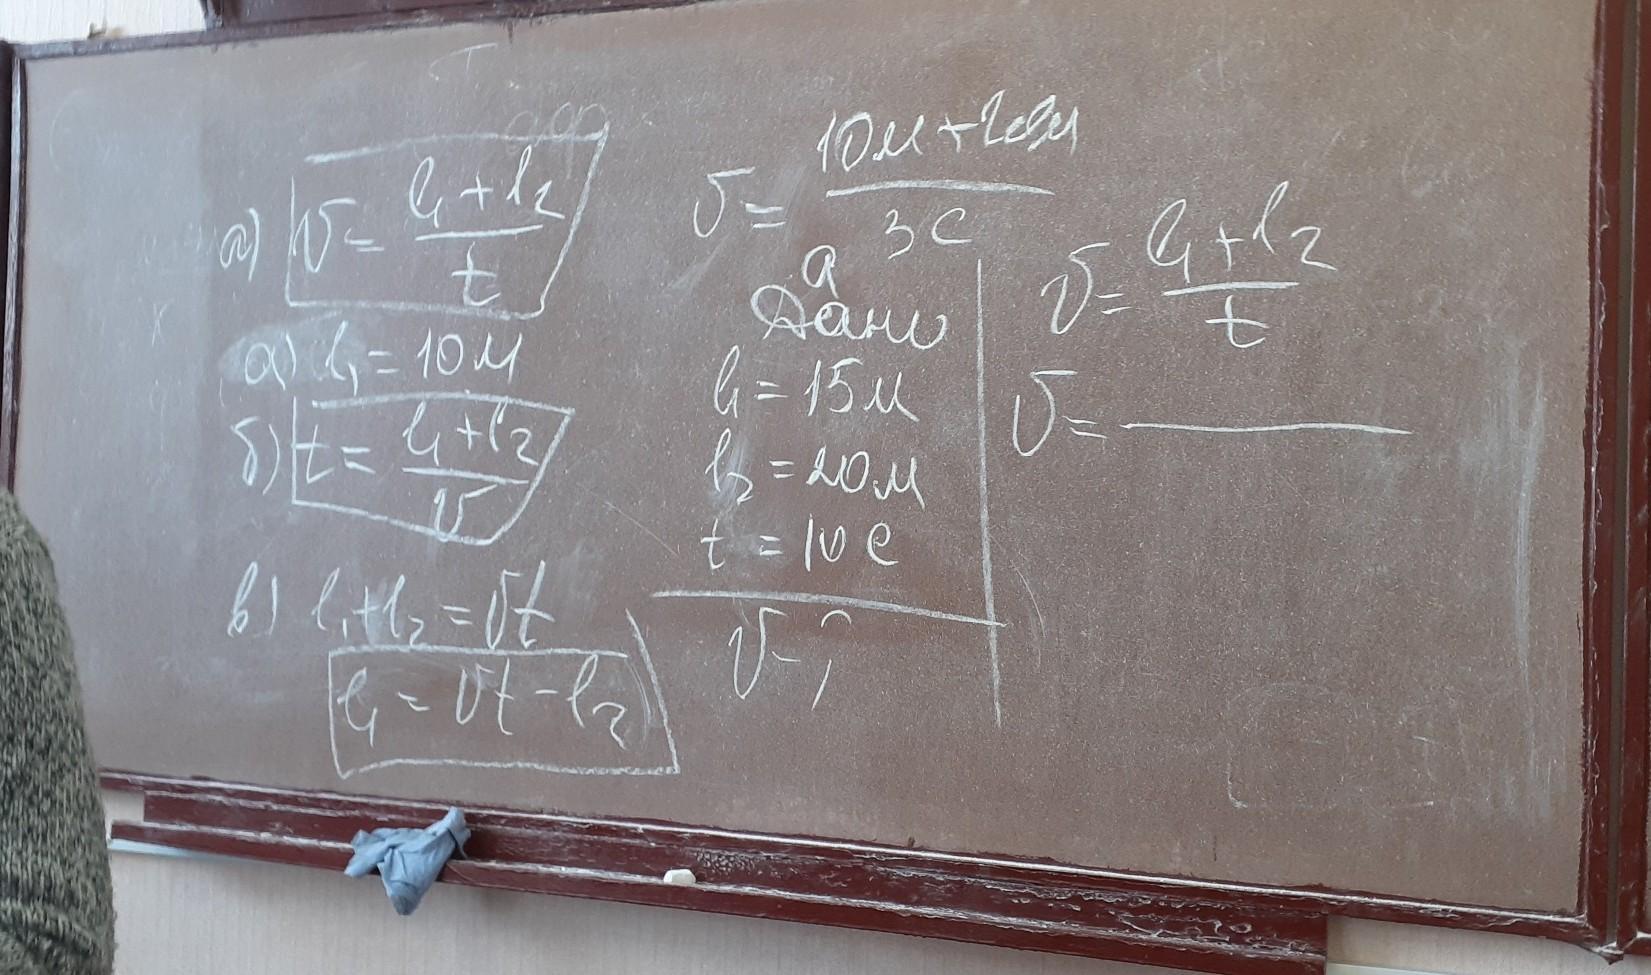 а) v = l₁ + l₂ / t
а) l₁ = 10 м
б) t = l₁ + l₂ / v
в) l₁ + l₂ = vt
l₁ = vt - l₂
v = 10 м + / 3 с
а
Дано
l₁ = 15 м
l₂ = 20 м
t = 10 с
v - ?
v = l₁ + l₂ / t
v =